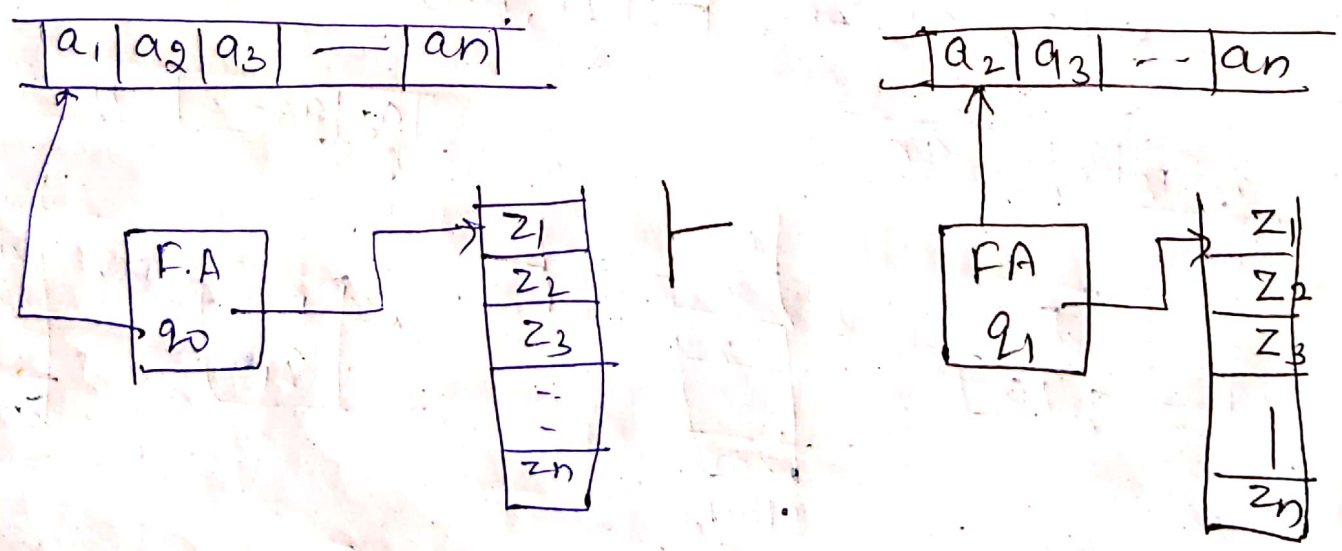 a1 a2 a3 — an
F.A
q0
z1
z2
z3
--
-
zn
⊢
a2 a3 -- an
FA
q1
z1
z2
z3
|
zn